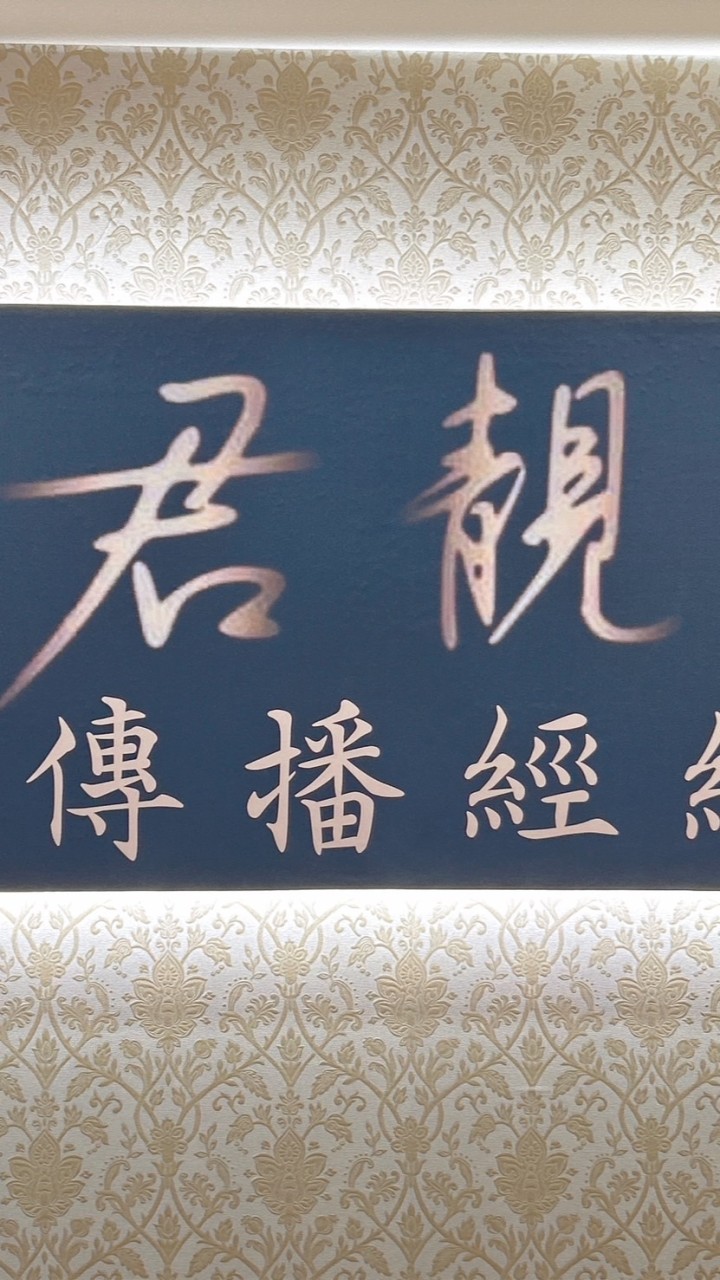 君靚
傳播經